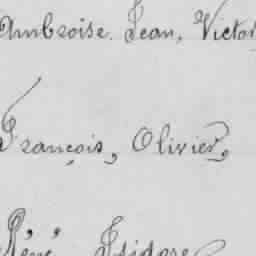 Ambroise. Jean, Victor
François, Olivier,
René, Isidore